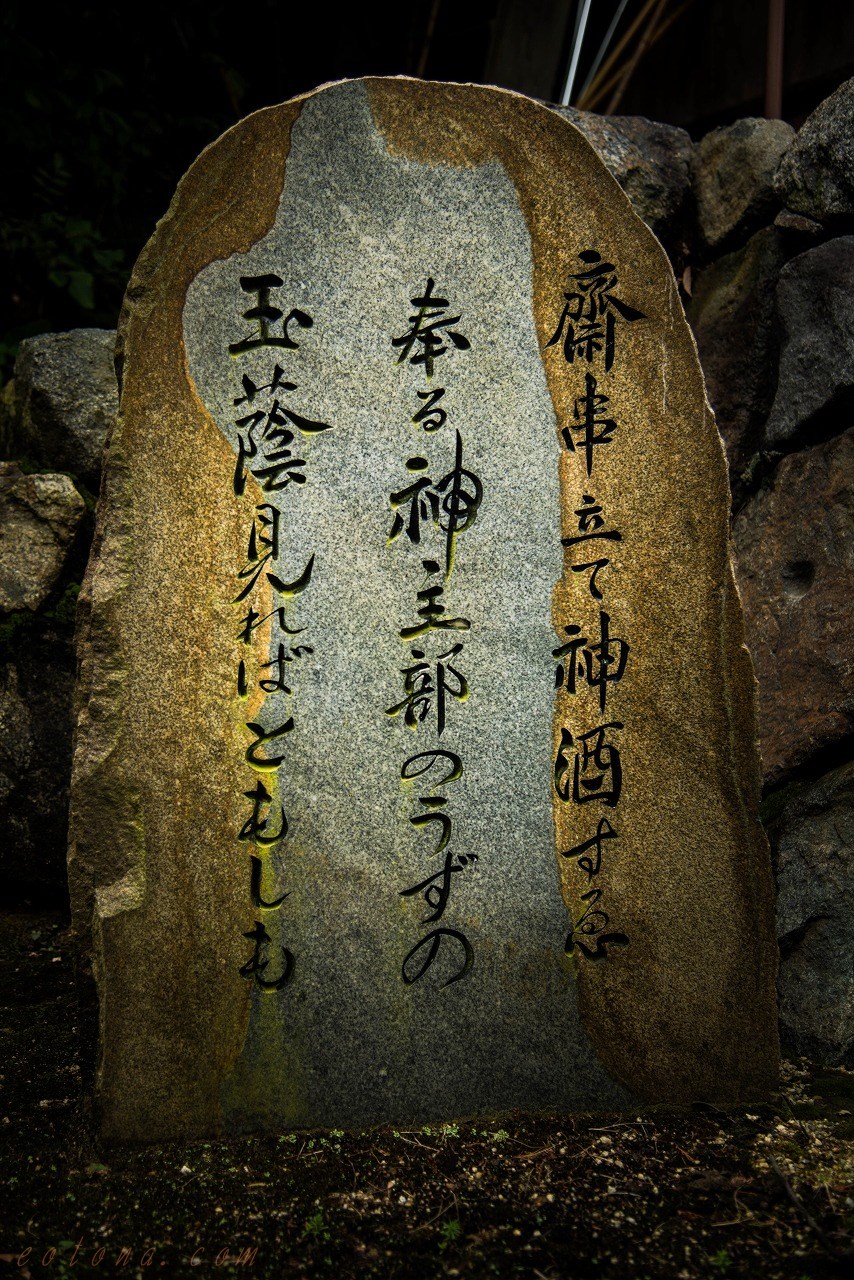 齋串立て神酒すゑ
奉る神主部のうずの
玉蔭見ればともしも
eotona.com